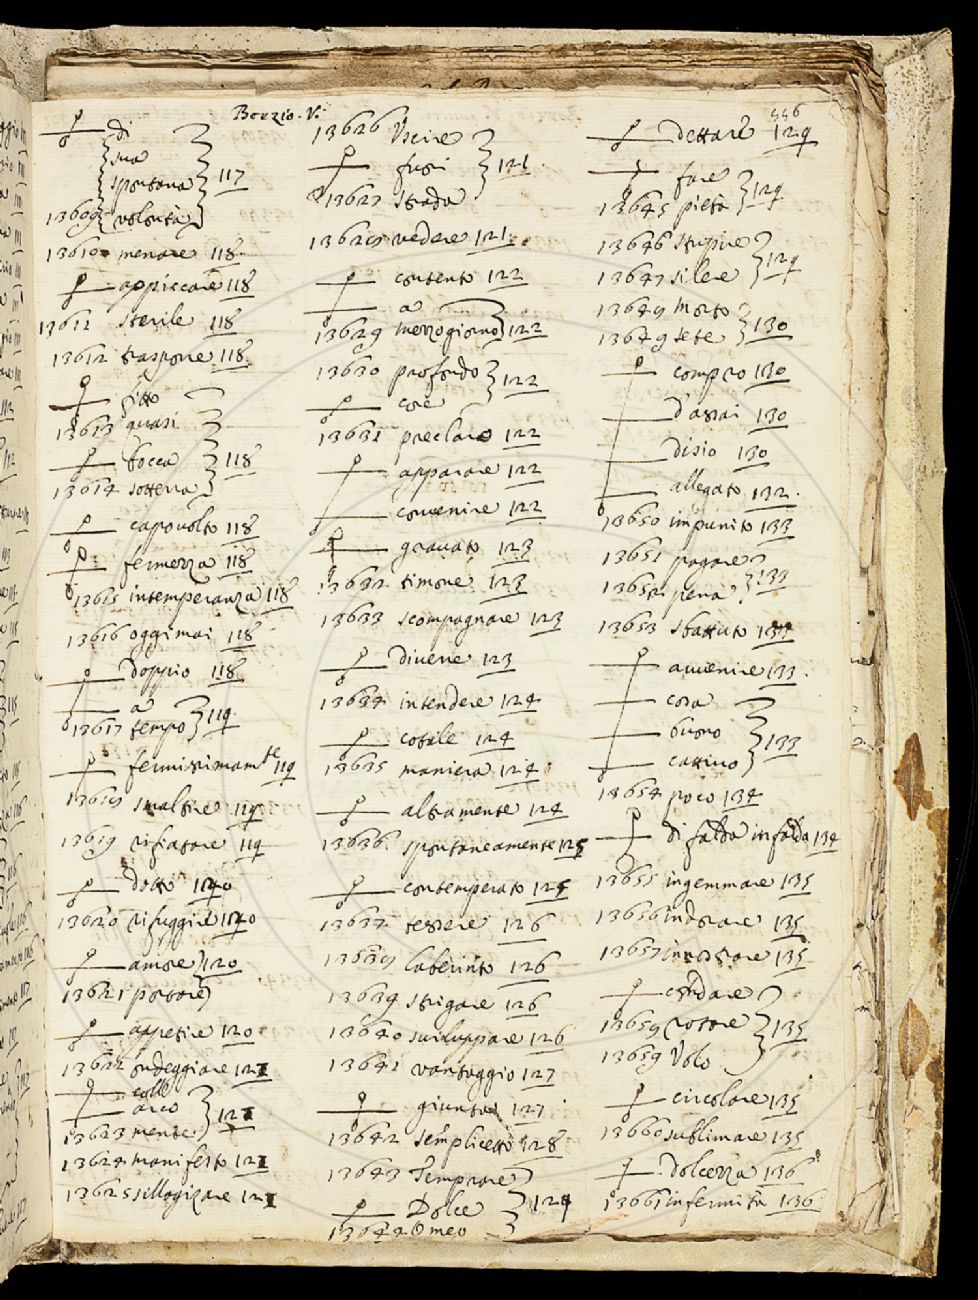 Boezio. V.
556
di
sua
spontana 117
13609 volontà
13610 menare 118
appiccare 118
13611 sterile 118
13612 trasporre 118
fitto
13613 quasi
bocca 118
13614 sotterra
capovolto 118
fermezza 118
13615 intemperanza 118
13616 oggimai 118
doppio 118
a
13617 tempo 119
fermissimamte 119
smaltire 119
13619 rifiatare 119
dotto 120
13620 rifuggire 120
amore 120
13621 portare
appetire 120
13622 ondeggiare 121
colli
arco 121
13623 mente
13624 manifesto 121
13625 sillogizare 121
13626 Uscire
fuori 121
13627 strada
vedere 121
contento 122
a
13629 mezzogiorno 122
13630 profondo 122
core
13631 preclaro 122
apparare 122
convenire 122
gravato 123
13632 timone 123
13633 scompagnare 123
divene 123
13634 intendere 124
cotale 124
13635 maniera 124
altramente 124
13636 spontaneamente 125
contemperato 125
13637 tessere 126
laberinto 126
13639 strigare 126
13640 sviluppare 126
13641 vantaggio 127
giunta 127
13642 semplicetto 128
13643 Temprare
Dolce 129
13644 Omeo
dettare 129
fare 129
13645 pietà
13646 stupire
13647 silere 129
morto
13649 sete 130
compro 130
d'assai 130
disio 130
allegato 132
13650 impunito 133
13651 pagare 133
13652 pena
13653 sbattuto 133
avvenire 133
cosa
buono 133
cattivo
13654 poco 134
di falda in falda 134
13655 ingemmare 135
13656 indorare 135
13657 inostrare 135
rotare 135
13659 Volo
circolare 135
13660 sublimare 135
Dolcezza 136
13661 infermità 136